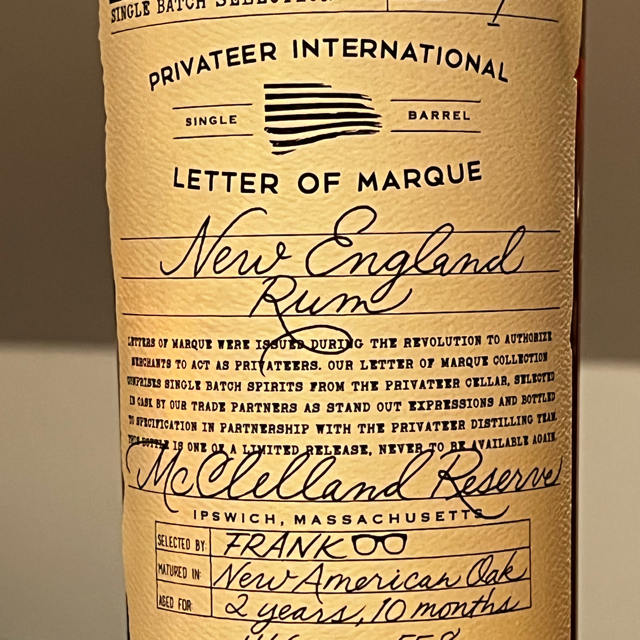 SINGLE BATCH
PRIVATEER INTERNATIONAL
SINGLE BARREL
LETTER OF MARQUE
New England
Rum
LETTERS OF MARQUE WERE ISSUED DURING THE REVOLUTION TO AUTHORIZE
MERCHANTS TO ACT AS PRIVATEERS. OUR LETTER OF MARQUE COLLECTION
COMPRISES SINGLE BATCH SPIRITS FROM THE PRIVATEER CELLAR, SELECTED
IN CASK BY OUR TRADE PARTNERS AS STAND OUT EXPRESSIONS AND BOTTLED
TO SPECIFICATION IN PARTNERSHIP WITH THE PRIVATEER DISTILLING TEAM.
THIS BOTTLE IS ONE OF A LIMITED RELEASE, NEVER TO BE AVAILABLE AGAIN.
McClelland Reserve
IPSWICH, MASSACHUSETTS
SELECTED BY: FRANK
MATURED IN: New American Oak
AGED FOR: 2 years, 10 months